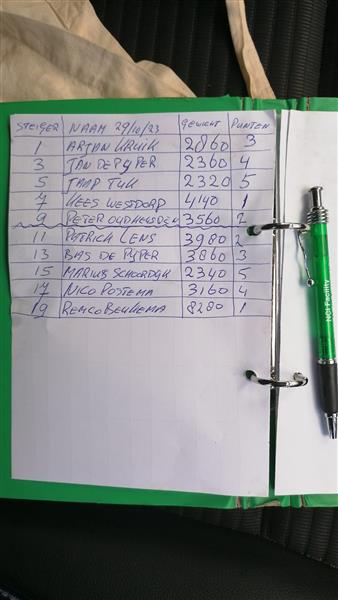 STEIGER NAAM 29/10/23 GEWICHT PUNTEN
1 ARJAN KRUIK 2860 3
3 JAN DE PIJPER 2360 4
5 JAAP TUK 2320 5
7 KEES WESTDORP 4140 1
9 PETER OUDHEUSDEN 3560 2
11 PATRICK LENS 3980 2
13 BAS DE PIJPER 3860 3
15 MARIUS SCHOORDIJK 2340 5
17 NICO POSTEMA 3160 4
19 REMCO BEUKEMA 8280 1
NCI Facility